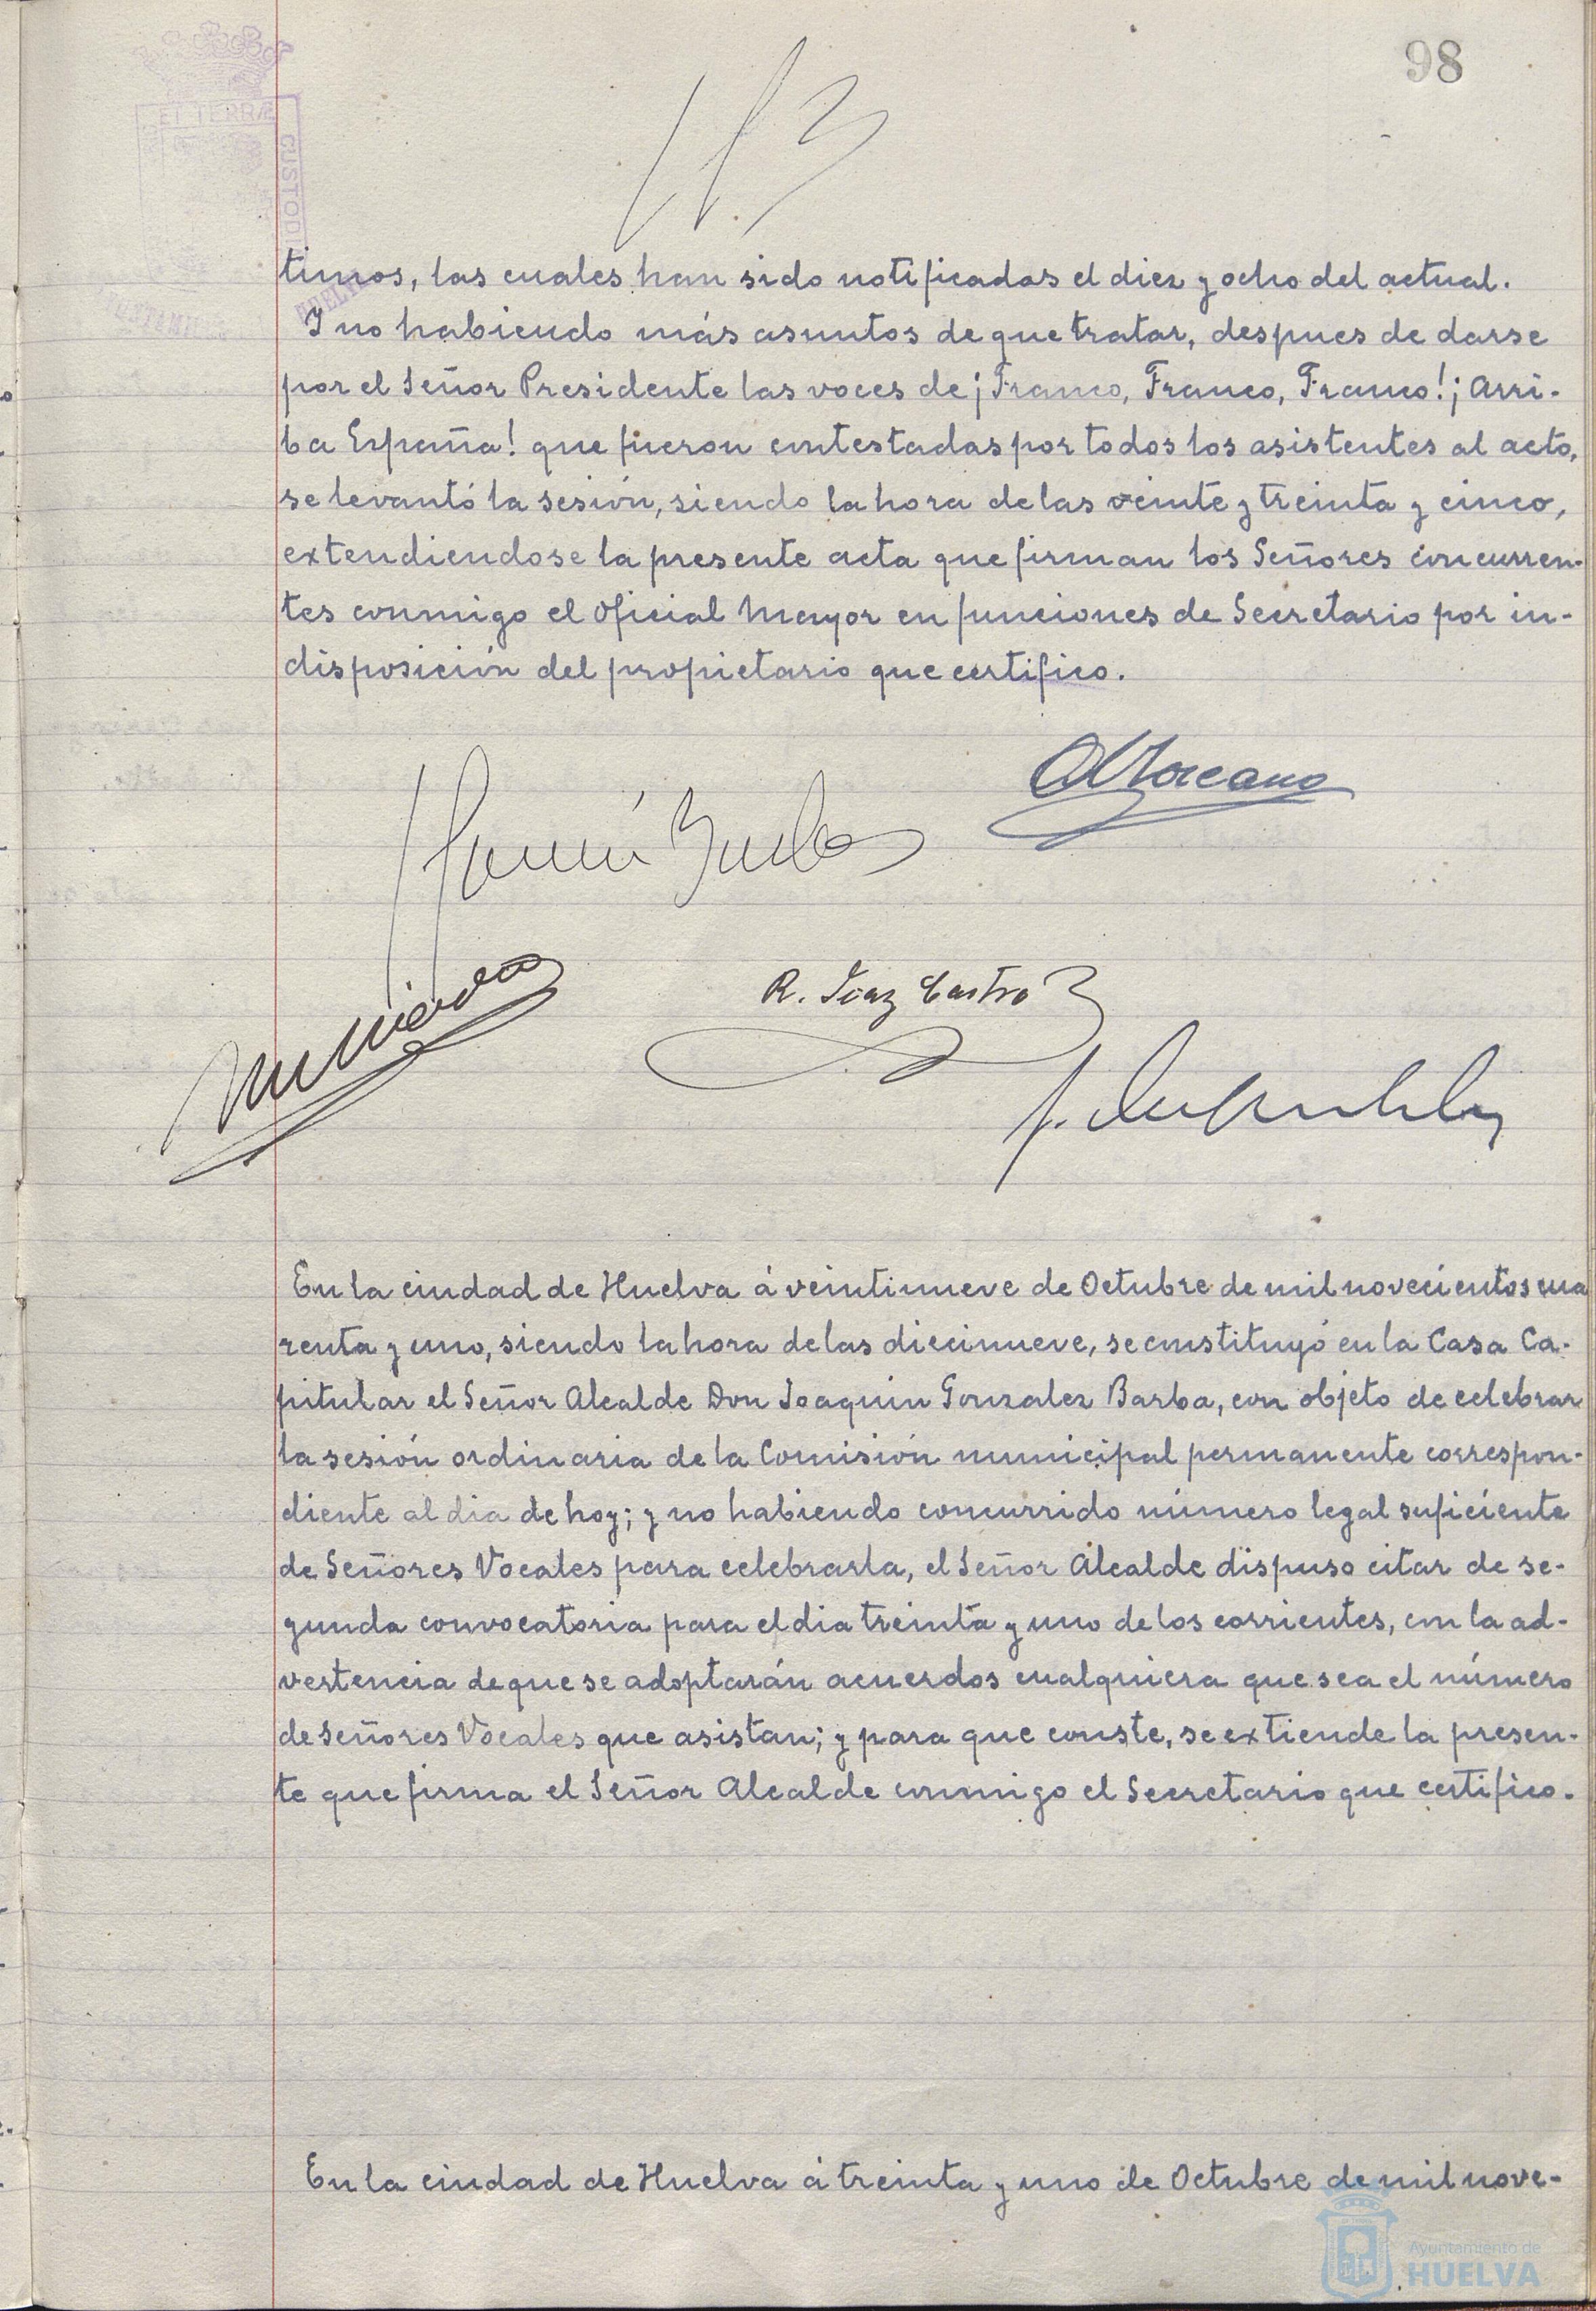 98
ET TERRÆ
CUSTODIA
timos, las cuales han sido notificadas el diez y ocho del actual.
Y no habiendo más asuntos de que tratar, despues de darse
por el Señor Presidente las voces de ¡Franco, Franco, Franco! ¡Arri-
ba España! que fueron contestadas por todos los asistentes al acto,
se levantó la sesión, siendo la hora de las veinte y treinta y cinco,
extendiendose la presente acta que firman los Señores concurren-
tes conmigo el Oficial Mayor en funciones de Secretario por in-
disposición del propietario que certifico.
R. Diaz Castro
En la ciudad de Huelva á veintinueve de Octubre de mil novecientos cua
renta y uno, siendo la hora de las diecinueve, se constituyó en la Casa Ca-
pitular el Señor Alcalde Don Joaquin Gonzalez Barba, con objeto de celebrar
la sesión ordinaria de la Comisión municipal permanente correspon-
diente al dia de hoy; y no habiendo concurrido número legal suficiente
de Señores Vocales para celebrarla, el Señor Alcalde dispuso citar de se-
gunda convocatoria para el dia treinta y uno de los corrientes, con la ad-
vertencia de que se adoptarán acuerdos cualquiera que sea el número
de Señores Vocales que asistan; y para que conste, se extiende la presen-
te que firma el Señor Alcalde conmigo el Secretario que certifico.
En la ciudad de Huelva á treinta y uno de Octubre de mil nove-
Ayuntamiento de
HUELVA